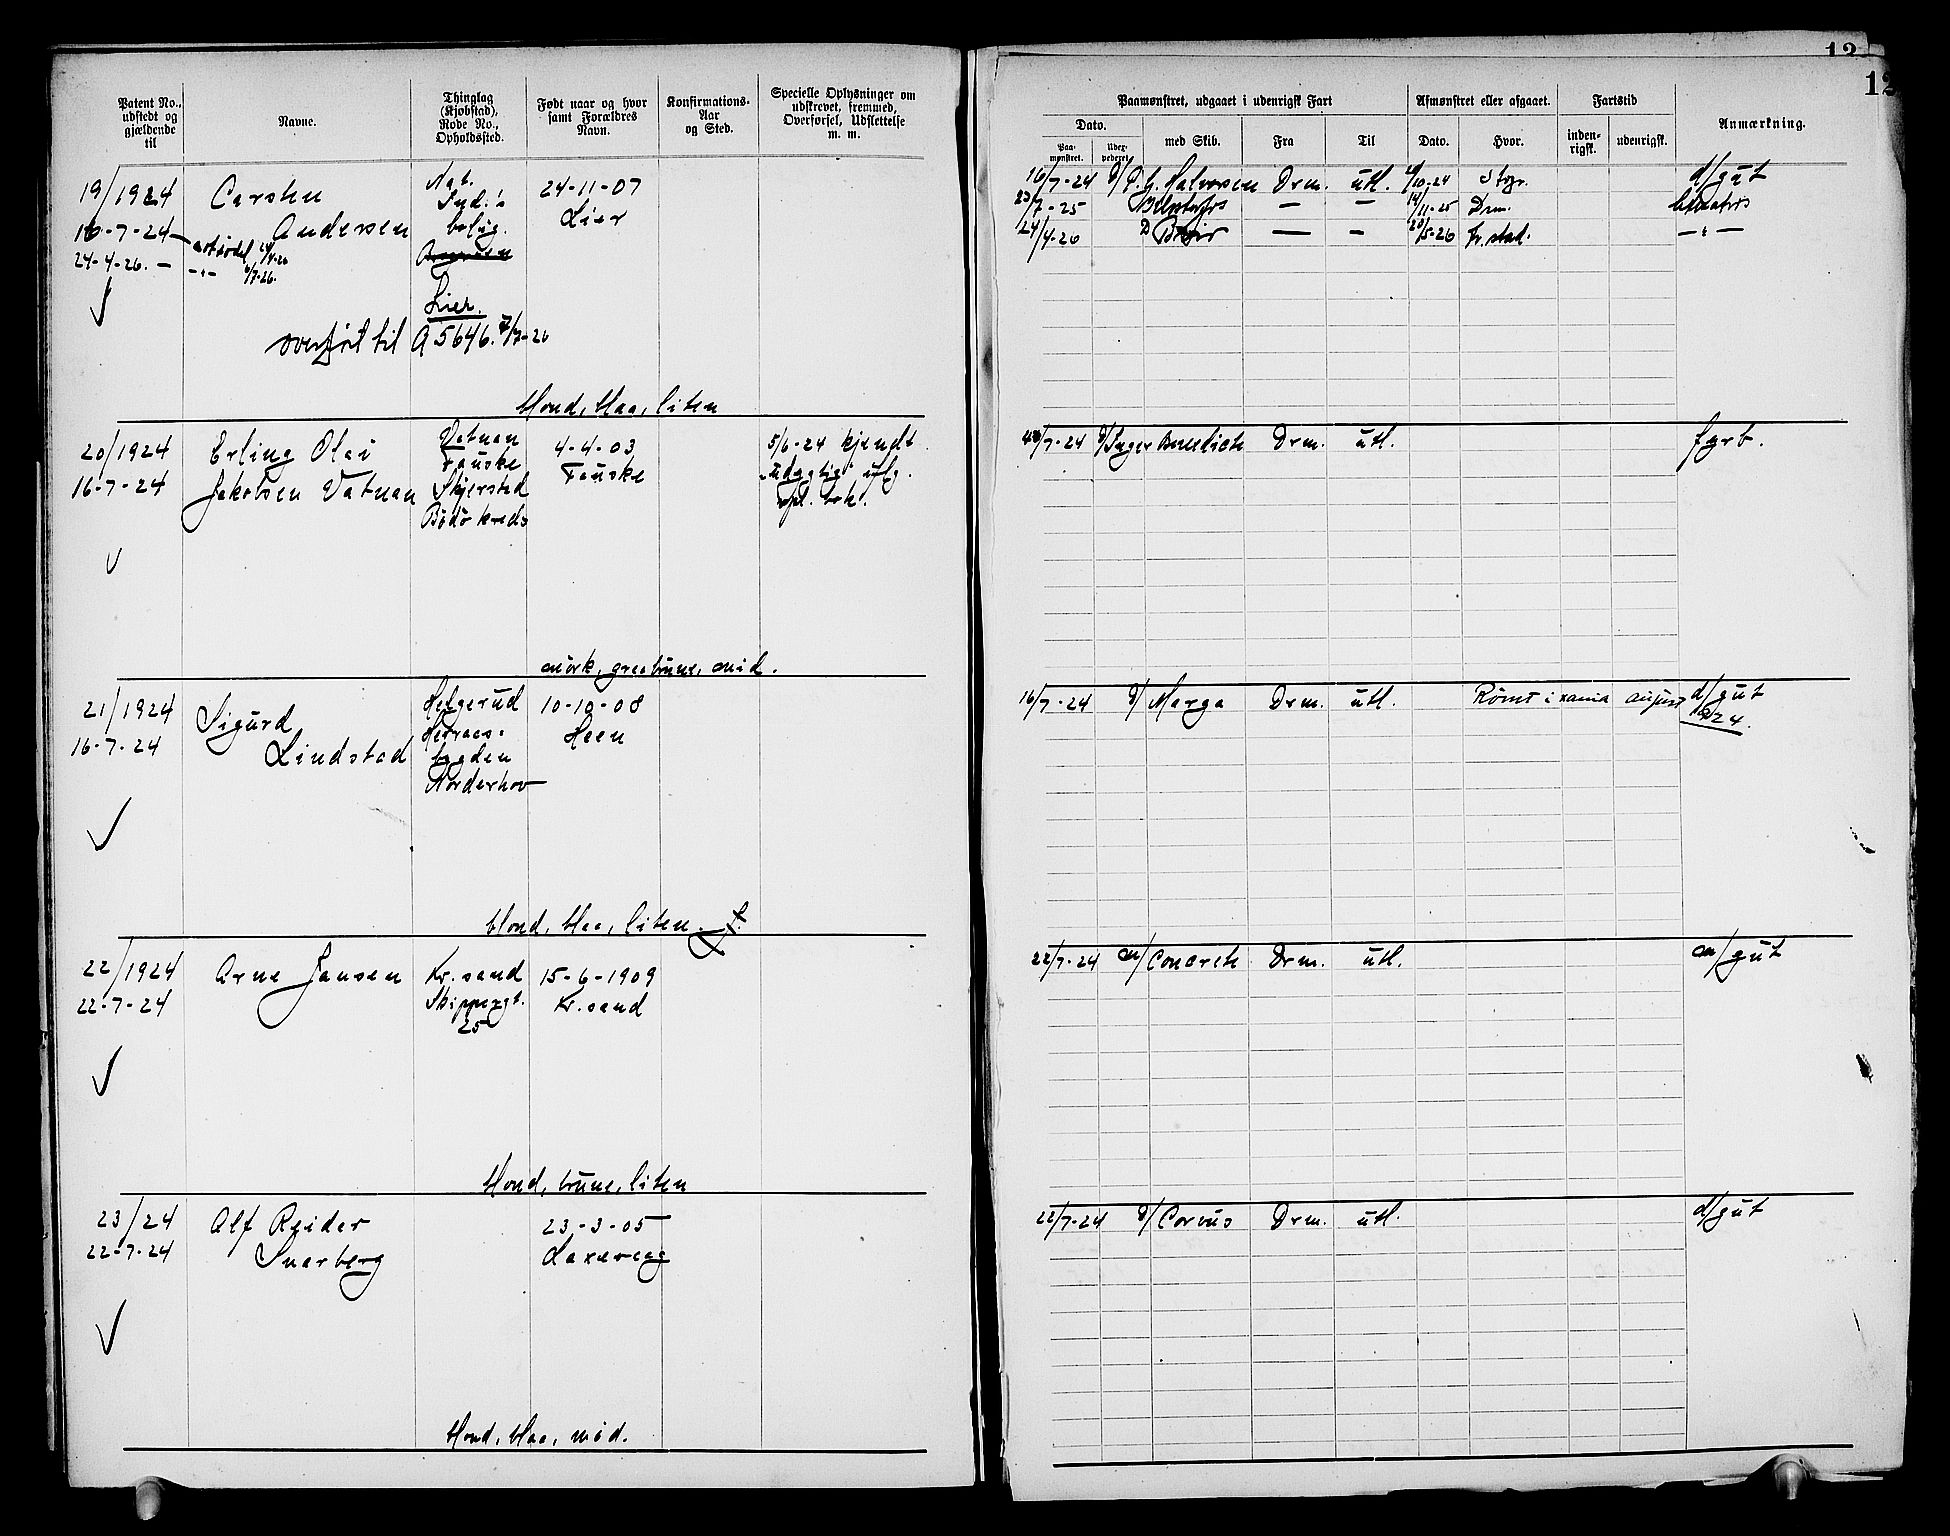 Patent No., udstedt og gjældende til
Navne.
Thinglag (Kjøbstad), Rode No., Opholdssted.
Født naar og hvor samt Forældres Navn.
Konfirmations-Aar og Sted.
Specielle Oplysninger om udskrevet, fremmed, Overførsel, Udslettelse m. m.
12
12
Paamønstret, udgaaet i udenrigsk Fart
Afmønstret eller afgaaet.
Fartstid
Anmærkning.
Dato.
Paa-mønstret.
med Skib.
Fra
Til
Dato.
Hvor.
inden-rigsk.
udenrigsk.
19/1924
16-7-24
24-4-26. —
Carsten
Andersen
Ind.s
bolig.
Lier.
24-11-07
Lier
overført til A 5646. 7/7-26
blond, blaa, liten
16/7-24 D/ P. G. Halvorsen Drm. utl. /10-24 Styr. d/gut
23/7-25 — — 14/11-25 Drm.
24/4-26 — — 20/5-26 Fr.stad. —〃—
20/1924
16-7-24
Erling Olai
Jakobsen Vatnan
Vatnan
Fauske
Skjerstad
Bodö kreds
4-4-03
Fauske
5/6-24 kjendt
"udygtig" utg.
mörk, graabrune, mid.
/7-24 D/ Inger Benedicte Drm. utl. fyrb.
21/1924
16-7-24
Sigurd
Lindstad
Helgerud
bygden
Norderhov
10-10-08
Heen
blond, blaa, liten
16/7-24 D/ Marga Drm. utl. Rømt i xania august 1924. d/gut
22/1924
22-7-24
Arne Jansen
Kr.sand
Skippergt.
25
15-6-1909
Kr.sand
blond, brune, liten
22/7-24 m/ Concrete Drm. utl. m/gut
23/24
22-7-24
Alf Reider
Snarberg
23-3-05
Laxevaag
blond, blaa, mid.
22/7-24 D/ Corvus Drm. utl. d/gut